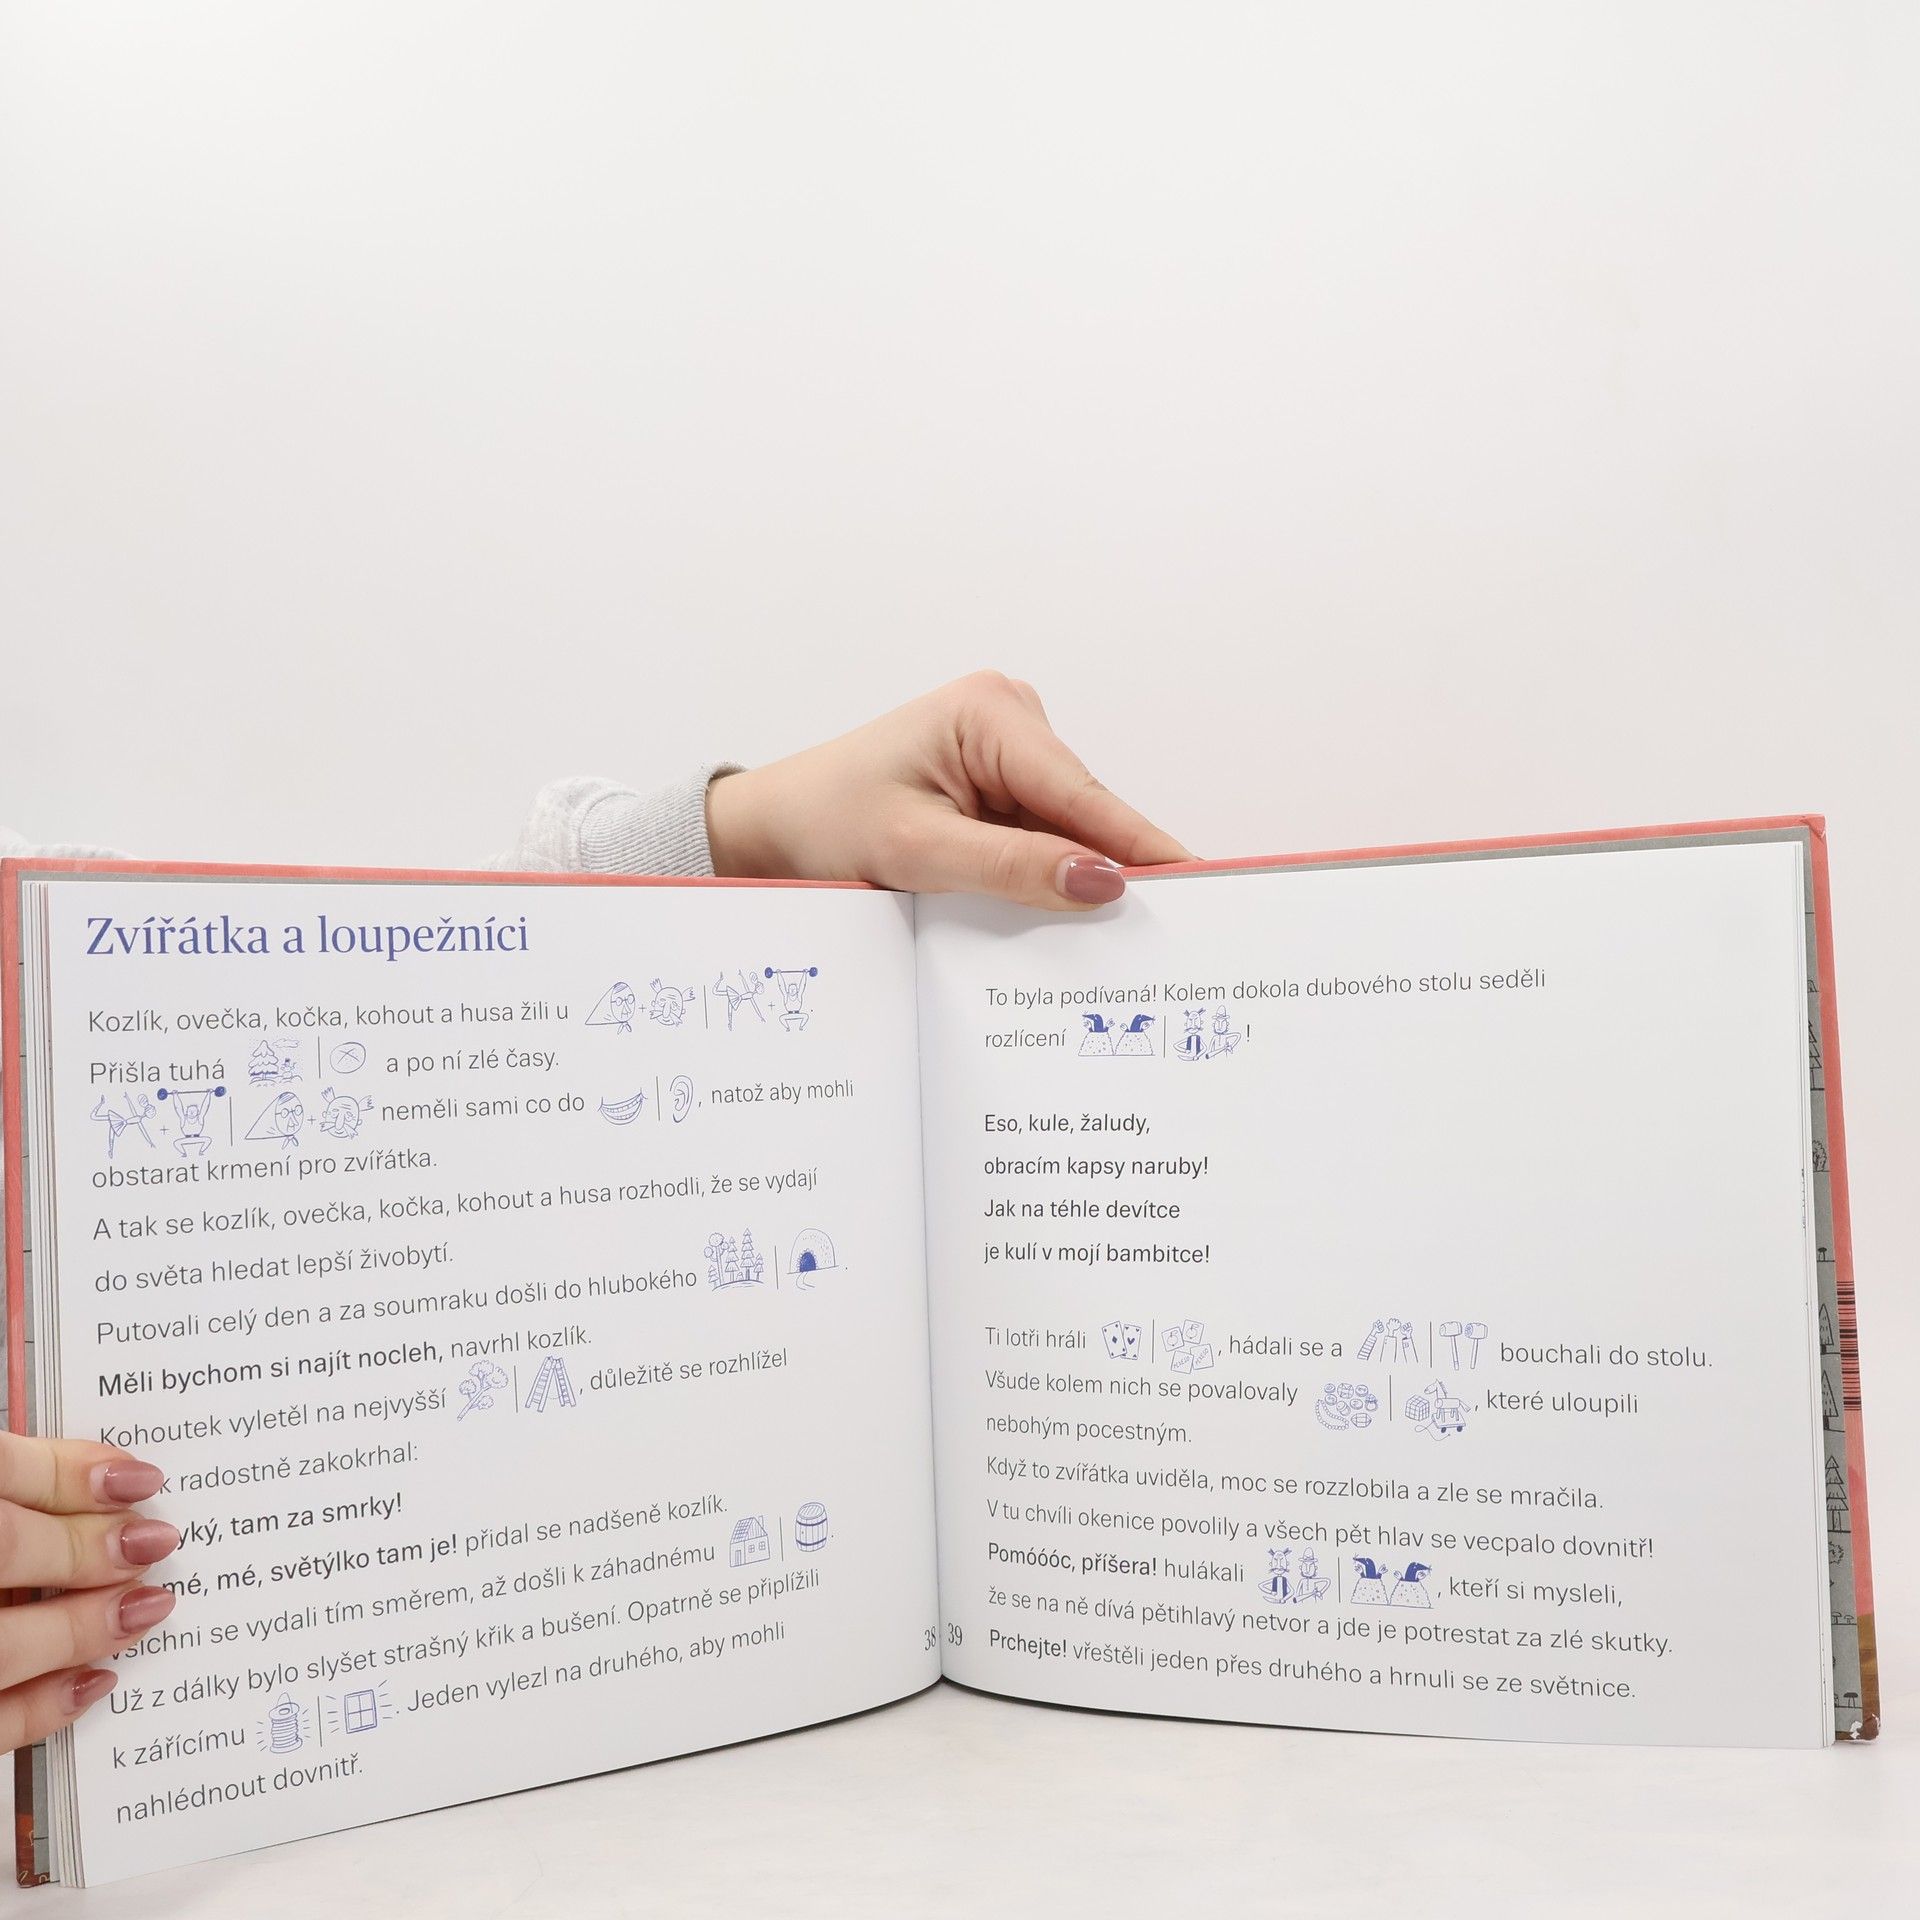 Zvířátka a loupežníci
Kozlík, ovečka, kočka, kohout a husa žili u .
Přišla tuhá a po ní zlé časy.
neměli sami co do , natož aby mohli
obstarat krmení pro zvířátka.
A tak se kozlík, ovečka, kočka, kohout a husa rozhodli, že se vydají
do světa hledat lepší živobytí.
Putovali celý den a za soumraku došli do hlubokého .
Měli bychom si najít nocleh, navrhl kozlík.
Kohoutek vyletěl na nejvyšší , důležitě se rozhlížel
radostně zakokrhal:
tam za smrky!
mé, mé, světýlko tam je! přidal se nadšeně kozlík.
Všichni se vydali tím směrem, až došli k záhadnému .
Už z dálky bylo slyšet strašný křik a bušení. Opatrně se připlížili
k zářícímu . Jeden vylezl na druhého, aby mohli
nahlédnout dovnitř.
38
39
To byla podívaná! Kolem dokola dubového stolu seděli
rozlícení !
Eso, kule, žaludy,
obracím kapsy naruby!
Jak na téhle devítce
je kulí v mojí bambitce!
Ti lotři hráli , hádali se a bouchali do stolu.
Všude kolem nich se povalovaly , které uloupili
nebohým pocestným.
Když to zvířátka uviděla, moc se rozzlobila a zle se mračila.
V tu chvíli okenice povolily a všech pět hlav se vecpalo dovnitř!
Pomóóóc, příšera! hulákali , kteří si mysleli,
že se na ně dívá pětihlavý netvor a jde je potrestat za zlé skutky.
Prchejte! vřeštěli jeden přes druhého a hrnuli se ze světnice.